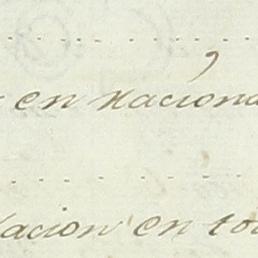 en naciona
acion en to